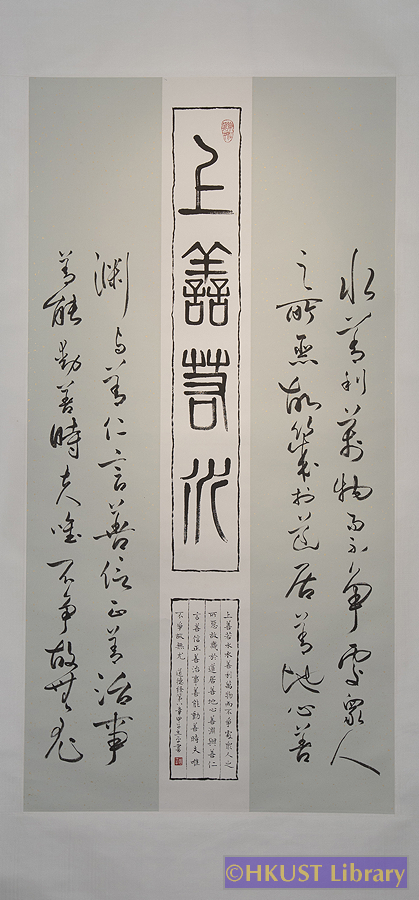 上善若水
水善利萬物而不爭處眾人
之所惡故幾於道居善地心善
淵与善仁言善信正善治事
善能動善時夫唯不爭故無尤
上善若水水善利萬物而不爭處眾人之
所惡故幾於道居善地心善淵與善仁
言善信正善治事善能動善時夫唯
不爭故無尤 道德經第八章甲子
©HKUST Library